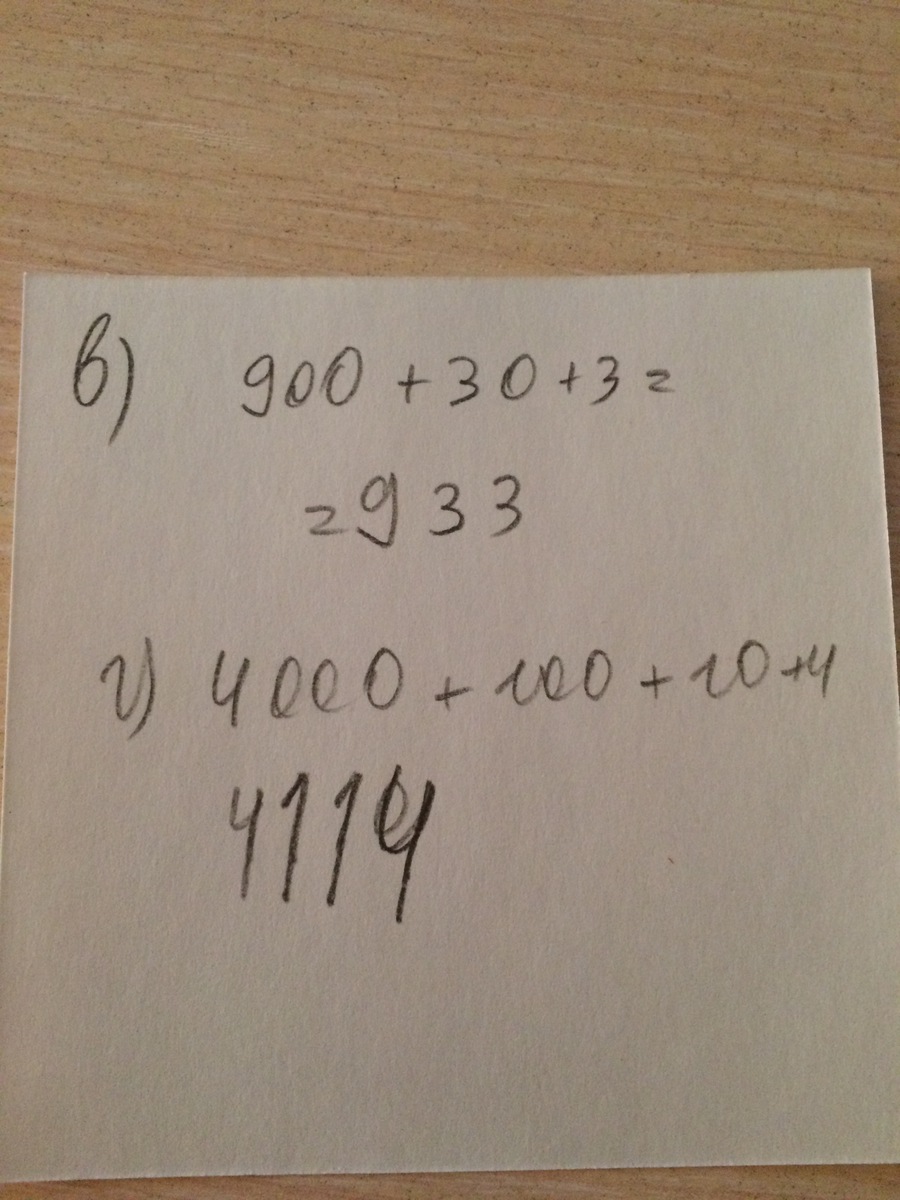 в) 900 + 30 + 3 =
= 933
г) 4000 + 100 + 10 + 4
4114